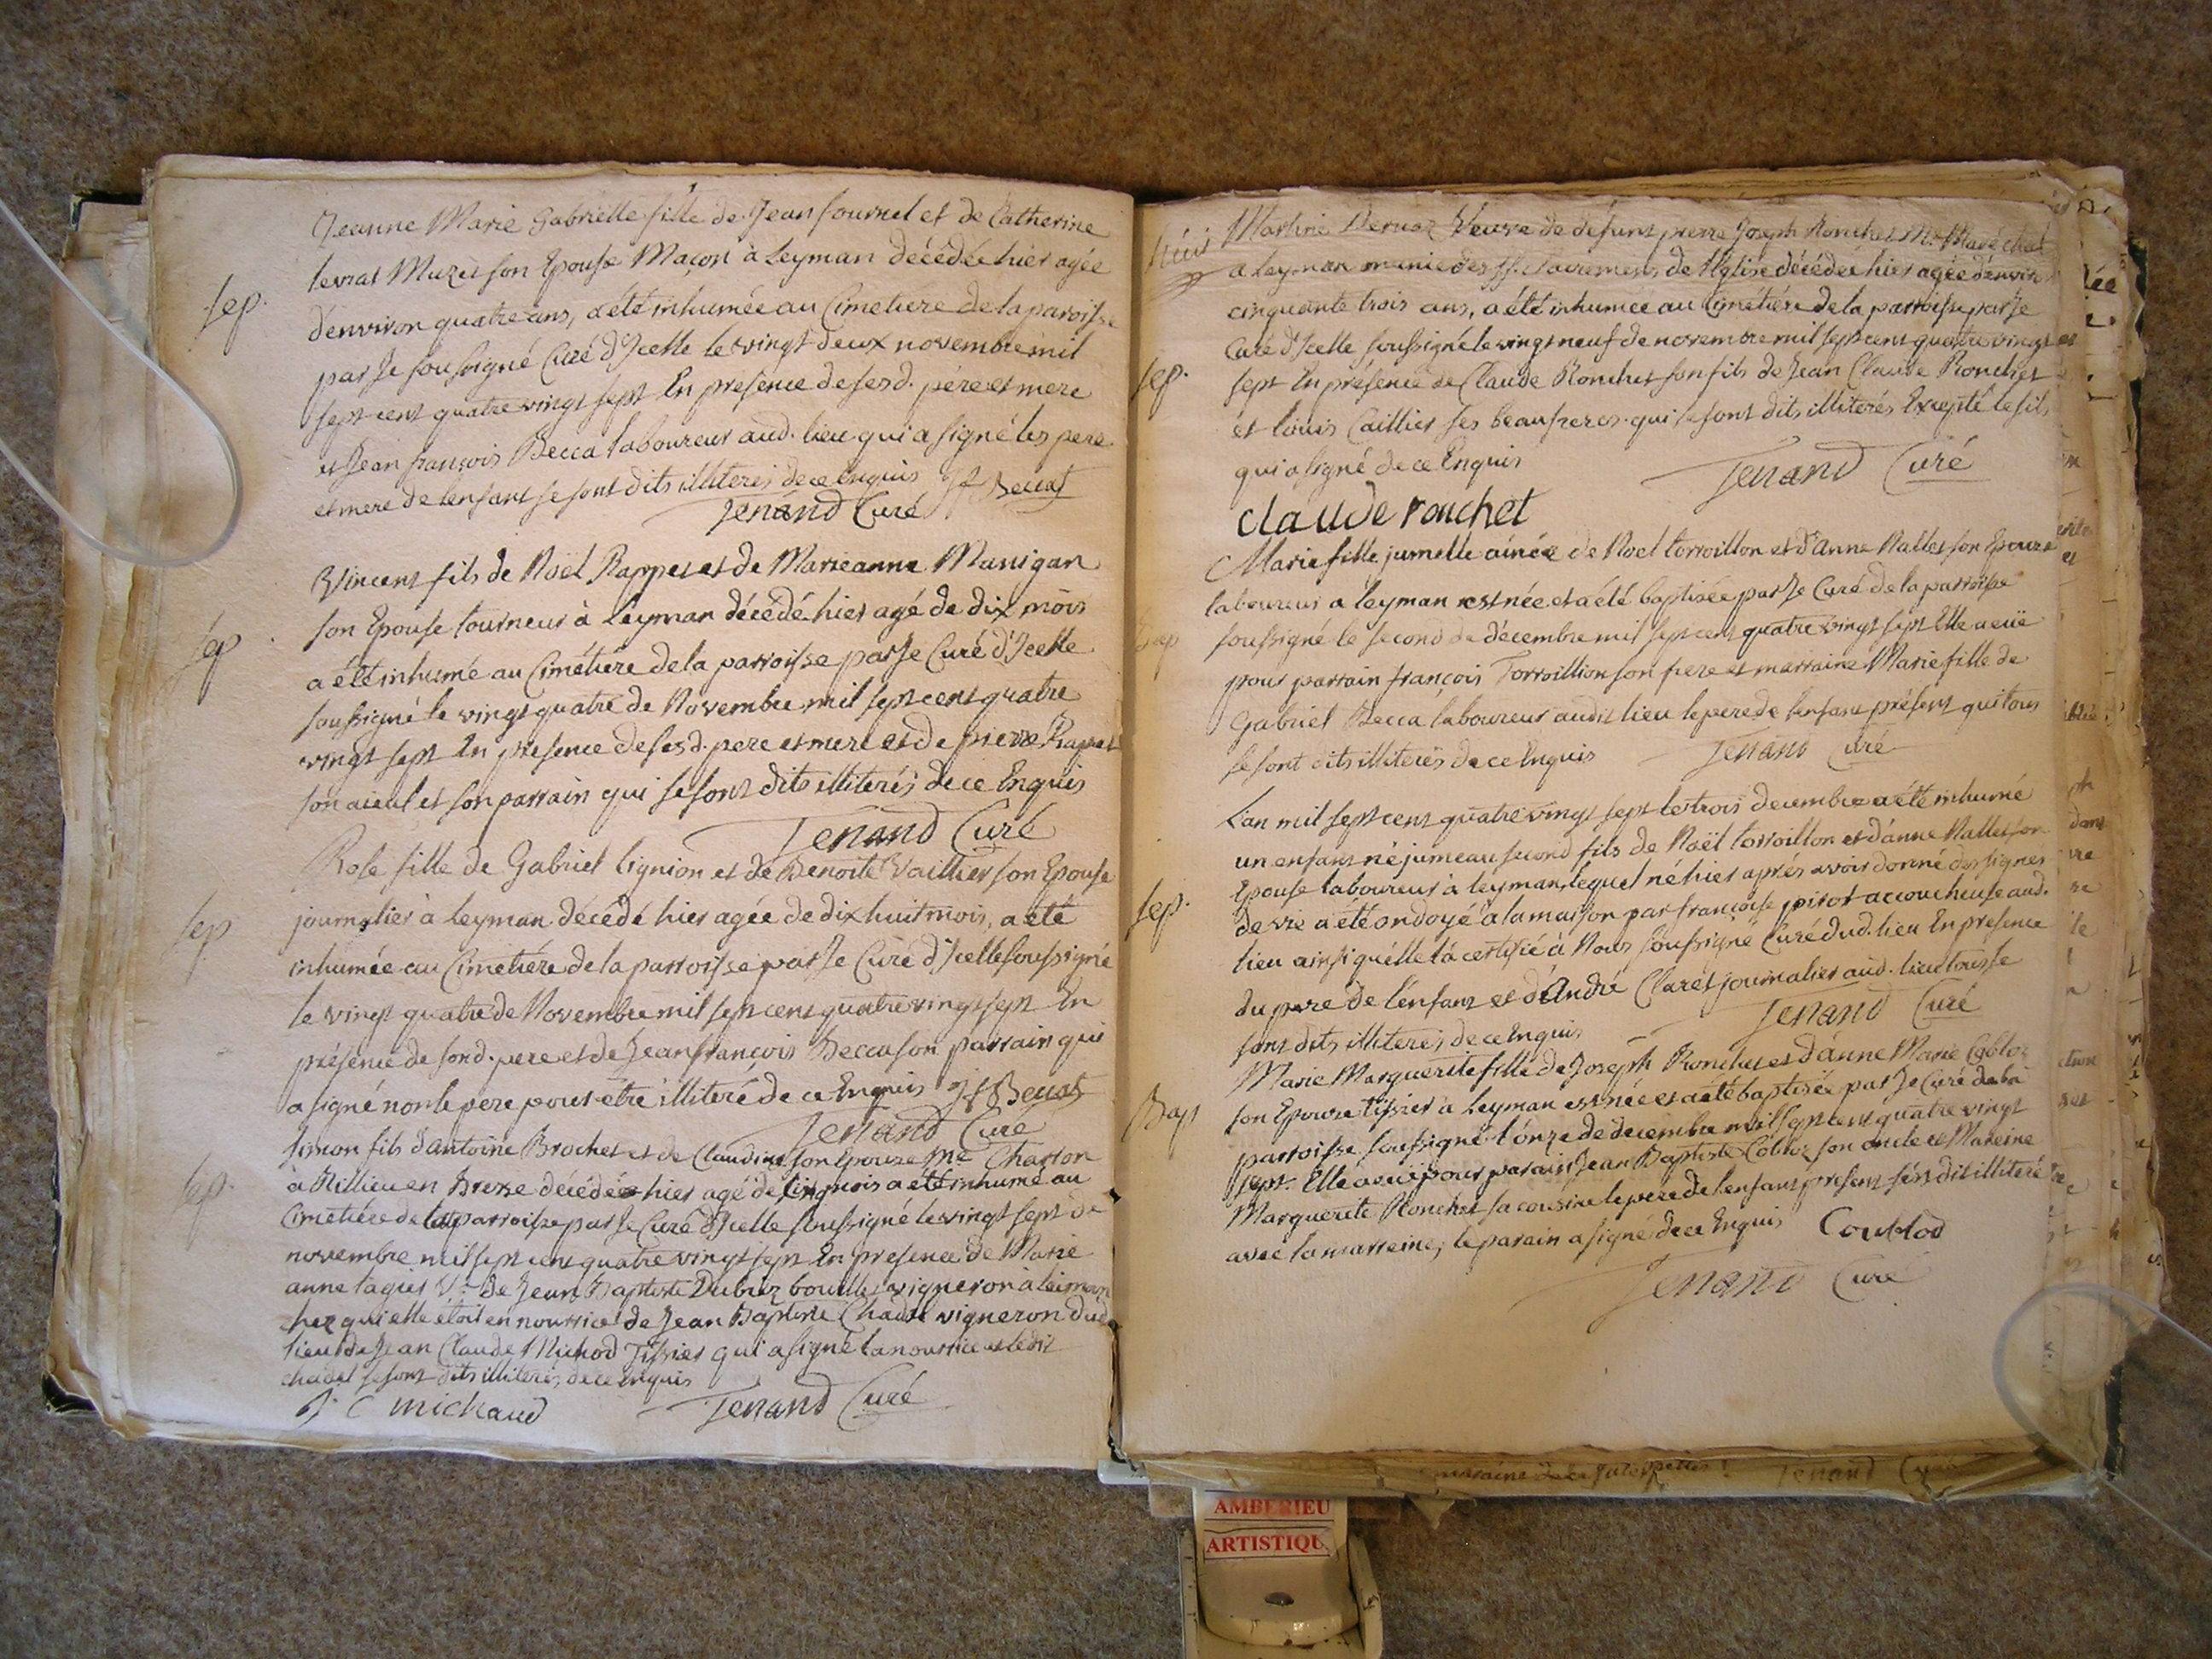 Jeanne Marie Gabrielle fille de Jean fournel et de Catherine
levrat Muzet son Epouse Maçon à Leyman décédée hier agée
sep.
d'environ quatre ans, a été inhumée au Cimetiere de la paroisse
par Je soussigné Curé d'Icelle le vingt deux novembre mil
sept cent quatre vingt sept En présence de sesd. pére et mere
et Jean françois Becca laboureur aud. lieu qui a signé les pere
et mere de lenfant se sont dits illiterés de ce Enquis JF Beccat
Tenand Curé
Vincent fils de Noël Rappet et de Marieanne Mansigan
son Epouse tourneur à Leyman décédé hier agé de dix mois
sep.
a été inhumé au Cimétiere de la parroisse par Je Curé d'Icelle
soussigné le vingt quatre de Novembre mil sept cent quatre
vingt sept En presence de sesd. pere et mere et de pierre Rappet
son aieul et son parrain qui se sont dits illiterés de ce Enquis
Tenand Curé
Rose fille de Gabriel Lignion et de Benoite Vaillier son Epouse
journalier à Leyman décédé hier agée de dix huit mois, a été
sep
inhumée au Cimetiére de la parroisse par Je Curé d'Icelle soussigné
le vingt quatre de Novembre mil sept cent quatre vingt sept En
présence de sond. pere et de Jean françois Becca son parrain qui
a signé non le pere pour être illiteré de ce Enquis JF Beccat
Tenand Curé
Simon fils d'antoine Brochet et de Claudine son Epouse Me Charron
sep.
à Rillieu en Bresse décédée hier agé de cinq mois a été inhumé au
Cimetiére de la parroisse par Je Curé d'Icelle soussigné le vingt sept de
novembre mil sept cent quatre vingt sept En presence de Marie
anne Vve de Jean Baptiste vigneron à leiman
chez qui elle étoit en nourrice de Jean Baptiste Chadel vigneron dud
lieu de Jean Claude Michod Tissier qui a signé la nourrice et ledit
chadel se sont dits illiterés de ce Enquis
J C michaud Tenand Curé
Martine Dernaz Veuve de défunt pierre Joseph Ronchet Me Maréchal
à Leyman munie des SS. Sacremens de l'Eglise décédée hier agée d'environ
cinquante trois ans, a été inhumée au Cimétiére de la parroisse par Je
Curé d'Icelle soussigné le vingt neuf de novembre mil sept cent quatre vingt
sep.
sept En présence de Claude Ronchet son fils de Jean Claude Ronchet
et Louis Caillier ses beaufreres qui se sont dits illiterés Excepté le fils
qui a signé de ce Enquis Tenand Curé
claude ronchet
Marie fille jumelle ainée de Noel torroillon et d'Anne Nallet son Epouze
laboureur a leyman est née et a été baptisée par Je Curé de la parroisse
bap
soussigné le second de décembre mil sept cent quatre vingt sept Elle a eüe
pour parrain françois Torroillion son frere et marraine Marie fille de
Gabriel Becca laboureur audit lieu le pere de lenfant présent qui tous
se sont dits illiterés de ce Enquis Tenand Curé
L'an mil sept cent quatre vingt sept le trois decembre a été inhumé
un enfant né jumeau second fils de Noël torroillon et d'anne Nallet son
Epouse laboureur à leyman, lequel né hier aprés avoir donné des signes
sep.
de vie a été ondoyé à la maison par françoise pirot accoucheuse aud.
lieu ainsi qu'elle l'a certifié à Nous soussigné Curé dud. lieu En presence
du pere de l'enfant et d'André Claret journalier aud. lieu tous se
sont dits illiterés de ce Enquis Tenand Curé
Marie Marguerite fille de Joseph Ronchet et d'anne Marie Cobloz
son Epouse tissier à Leyman est née et a été baptisée par Je Curé de la
Bap
parroisse soussigné l'onze de decembre mil sept cent quatre vingt
sept. Elle a eüe pour parain Jean Baptiste Cobloz son oncle et Mareine
Marguerite Ronchet sa cousine le pere de l'enfant présent s'est dit illiteré
avec la marreine; le parain a signé de ce Enquis Coublod
Tenand Curé
Tenand Curé
AMBERIEU
ARTISTIQU